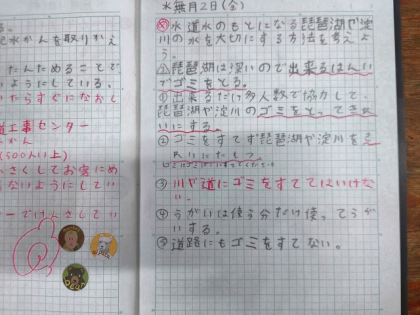 水かんを取りかえ
たんためることで
ようにしている。
たらすぐになおし
道工事センター
かん
(500人以上)
さくしてお客にめ
らないようにしてい
ーでけんさしてい
水無月2日(金)
め 水道水のもとになる琵琶湖や淀
川の水を大切にする方法を考えよ
う。
琵琶湖は深いので出来るはんい
でゴミをとる。
①出来るだけ多人数で協力して、
琵琶湖や淀川のゴミをとってきれ
いにする。
②ゴミをすてず琵琶湖や淀川をき
③川や道にゴミをすててはいけな
い。
④うがいは使う分だけ使ってうが
いする。
⑤道路にもゴミをすてない。